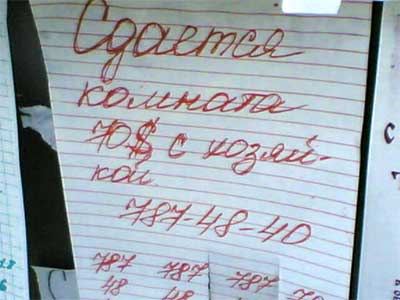 Сдается
комната
70$ с хозяй-
кой
787-48-40
787 787 787 7
48 48 48